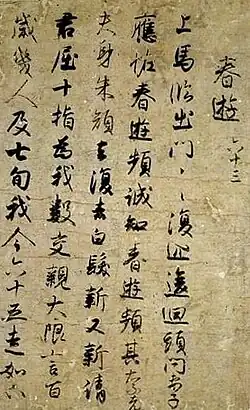 春遊
上馬臨出門〻復逡巡迴頭問妻子
應怪春遊頻誠知春遊頻其奈老
大身朱顏去復去白髮新又新請
君屈十指為我數交親大限年百
歲幾人及七旬我今六十五走如下